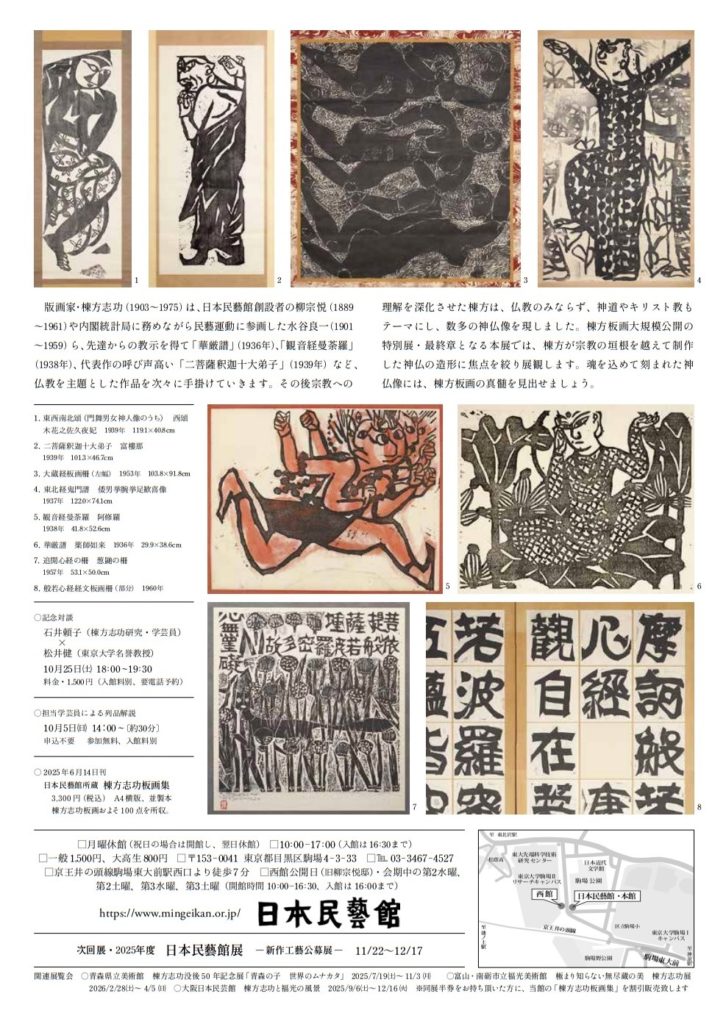 1
2
3
4
版画家・棟方志功(1903～1975)は、日本民藝館創設者の柳宗悦(1889
～1961)や内閣統計局に務めながら民藝運動に参画した水谷良一(1901
～1959)ら、先達からの教示を得て「華厳譜」(1936年)、「観音経曼荼羅」
(1938年)、代表作の呼び声高い「二菩薩釈迦十大弟子」(1939年)など、
仏教を主題とした作品を次々に手掛けていきます。その後宗教への
理解を深化させた棟方は、仏教のみならず、神道やキリスト教も
テーマにし、数多の神仏像を現しました。棟方板画大規模公開の
特別展・最終章となる本展では、棟方が宗教の垣根を越えて制作
した神仏の造形に焦点を絞り展観します。魂を込めて刻まれた神
仏像には、棟方板画の真髄を見出せましょう。
1. 東西南北頌(門舞男女神人像のうち) 西頌
木花之佐久夜妃 1939年 119.1×40.8cm
2. 二菩薩釈迦十大弟子 富樓那
1939年 101.3×46.7cm
3. 大蔵経板画柵(左幅) 1953年 103.8×91.8cm
4. 東北経鬼門譜 倭男拳腕拳足歓喜像
1937年 122.0×74.1cm
5. 観音経曼荼羅 阿修羅
1938年 41.8×52.6cm
6. 華厳譜 薬師如来 1936年 29.9×38.6cm
7. 追開心経の柵 葱鋤の柵
1957年 53.1×50.0cm
8. 般若心経経文板画柵(部分) 1960年
5
6
○記念対談
石井頼子(棟方志功研究・学芸員)
×
松井健(東京大学名誉教授)
10月25日(土) 18:00~19:30
料金・1,500円(入館料別、要電話予約)
○担当学芸員による列品解説
10月5日(日) 14:00~〔約30分〕
申込不要 参加無料、入館料別
○2025年6月14日刊
日本民藝館所蔵 棟方志功板画集
3,300円(税込) A4横版、並製本
棟方志功板画およそ100点を所収。
心無罣礙
故多密羅
波若般依
埵薩提菩
7
摩訶般
心經
觀自在
若波羅密
五蘊皆
8
□月曜休館(祝日の場合は開館し、翌日休館) □10:00-17:00(入館は16:30まで)
□一般1,500円、大高生800円 □〒153-0041 東京都目黒区駒場4-3-33 □℡ 03-3467-4527
□京王井の頭線駒場東大前駅西口より徒歩7分 □西館公開日(旧柳宗悦邸)・会期中の第2水曜、
第2土曜、第3水曜、第3土曜(開館時間10:00-16:30、入館は16:00まで)
https://www.mingeikan.or.jp/ 日本民藝館
次回展・2025年度 日本民藝館展 ―新作工藝公募展― 11/22~12/17
至 東北沢駅
東大先端科学技術
研究センター
日本近代
文学館
東京大学駒場Ⅱ
リサーチキャンパス
駒場公園
西館
日本民藝館・本館
京王井の頭線
区立駒場小
東京大学駒場Ⅰ
キャンパス
駒場野公園
駒場東大前
関連展覧会 ○青森県立美術館 棟方志功没後50年記念展「青森の子 世界のムナカタ」 2025/7/19(土)~11/3(月) ○富山・南砺市立福光美術館 極まり知らない無尽蔵の美 棟方志功展
2026/2/28(土)~4/5(日) ○大阪日本民芸館 棟方志功と福光の風景 2025/9/6(土)~12/16(火) ※同展半券をお持ち頂いた方に、当館の「棟方志功板画集」を割引販売致します